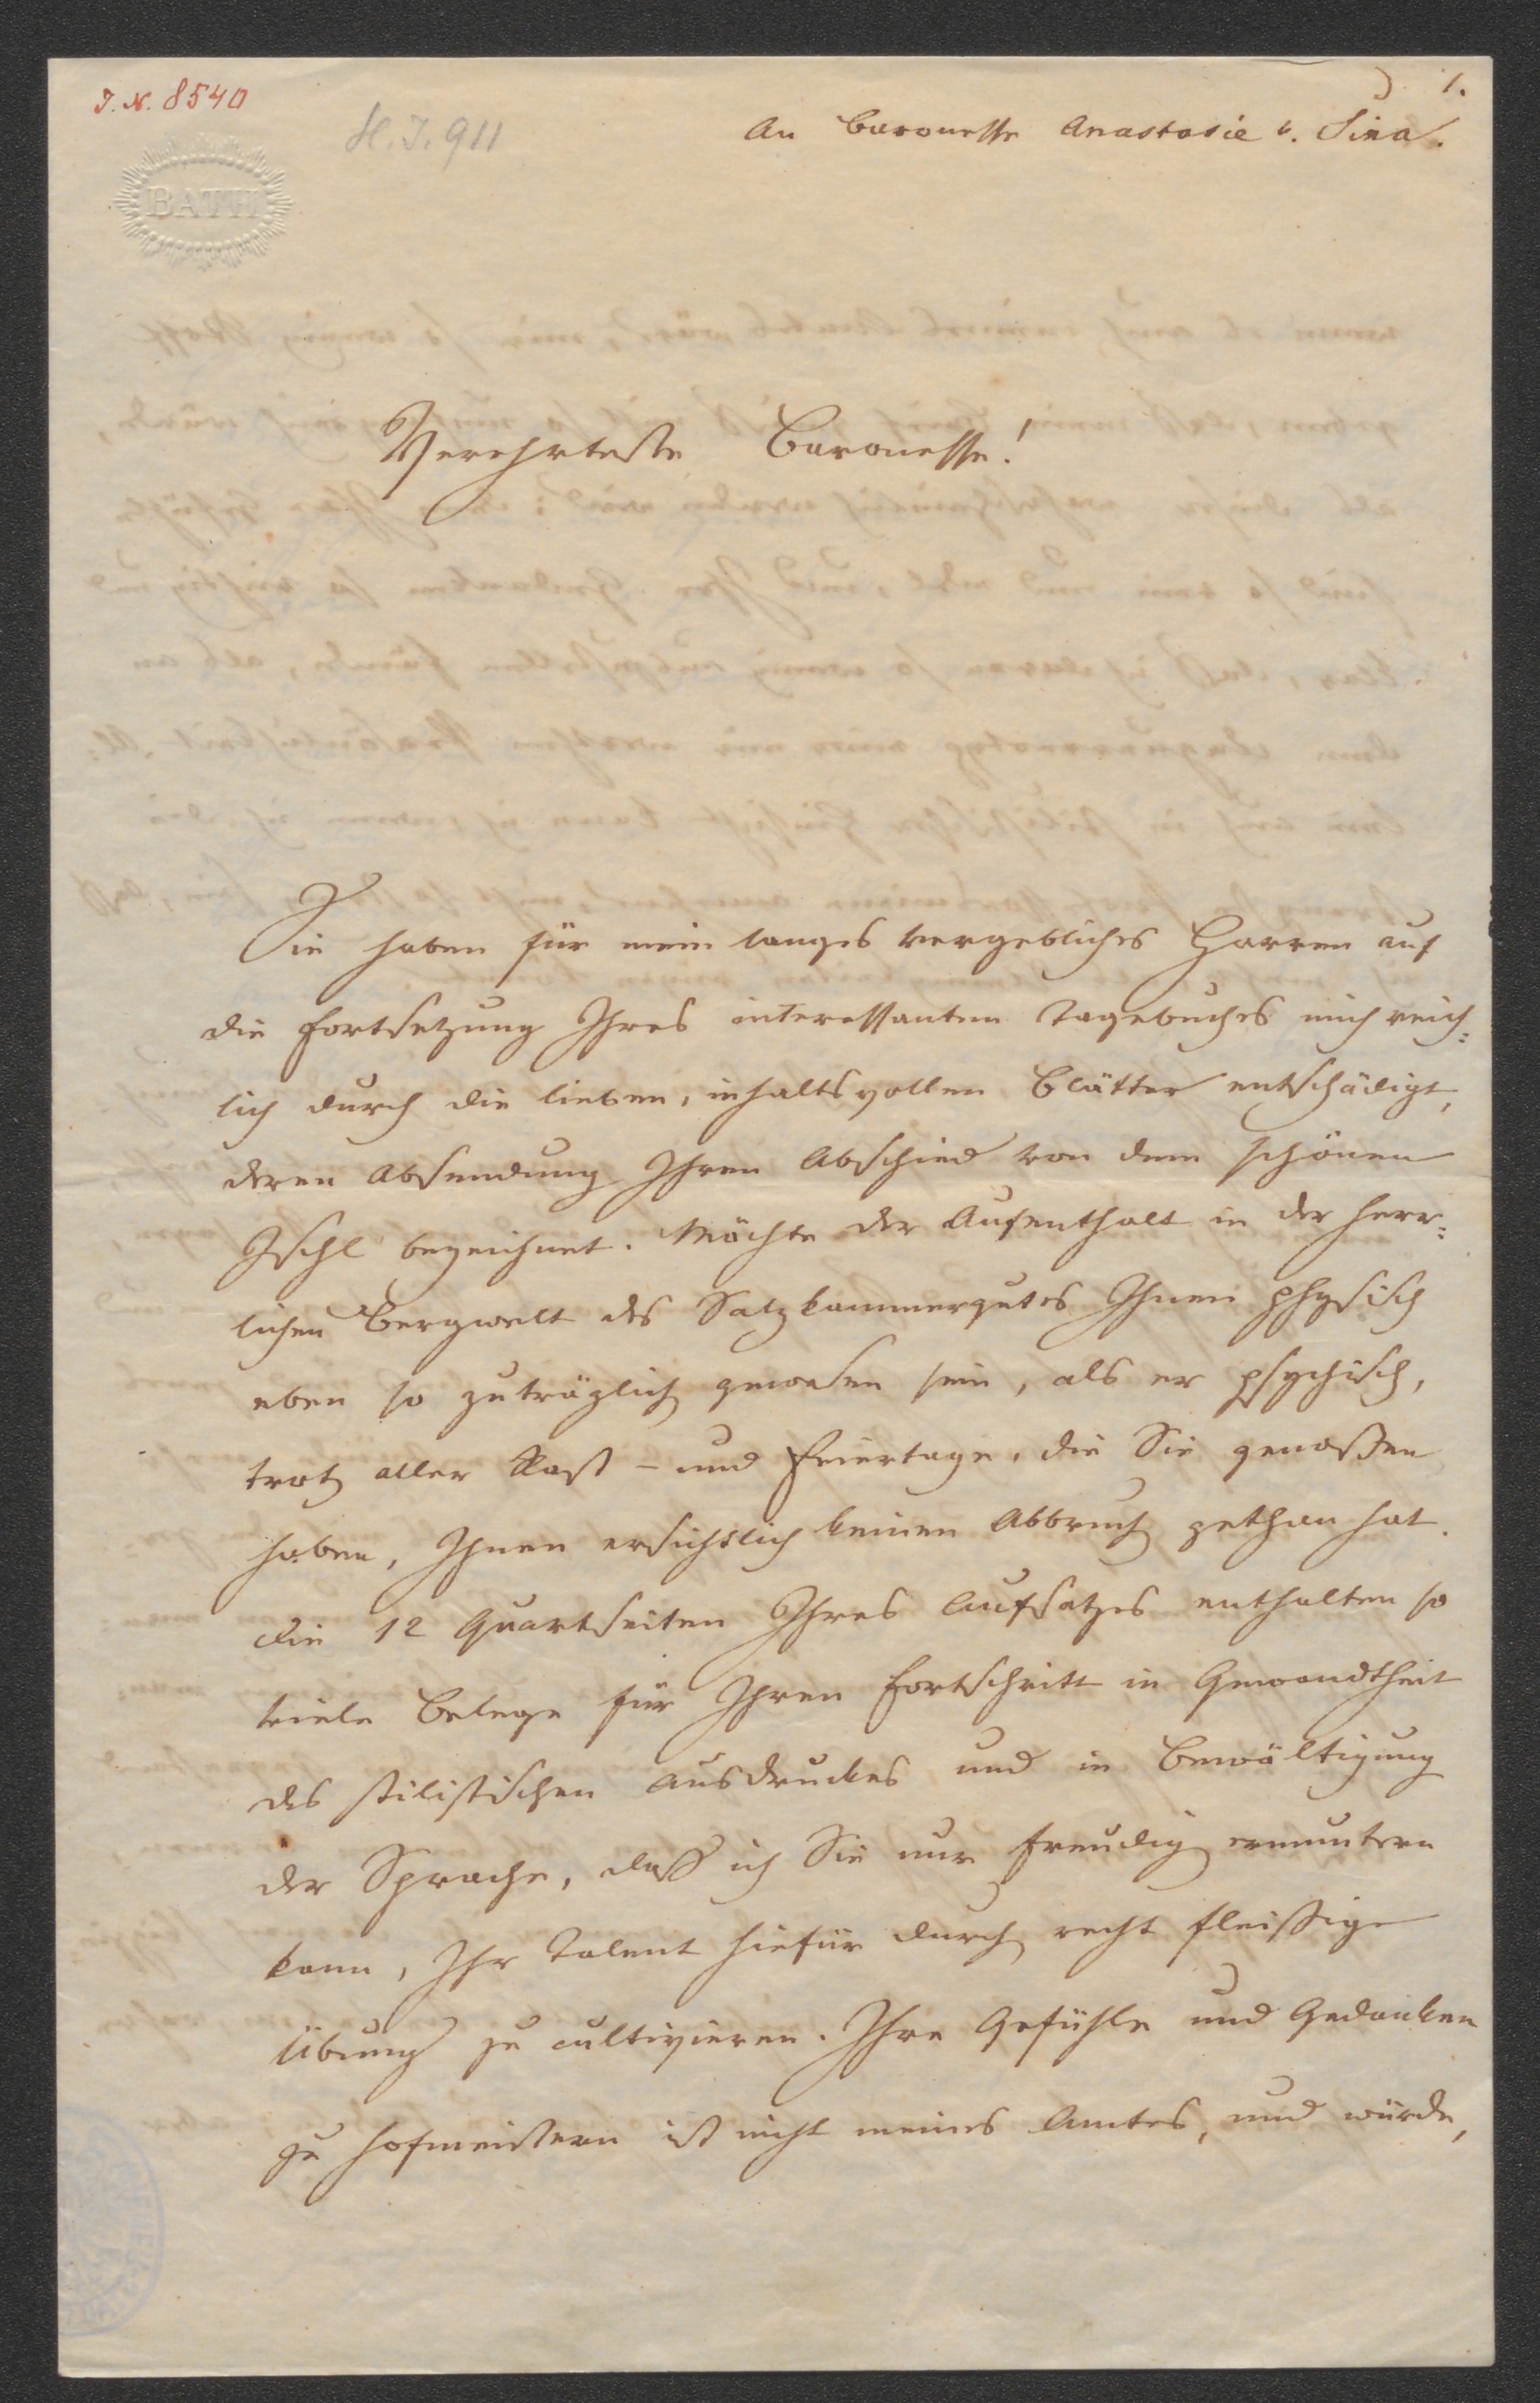 J. N. 8540
H. I. 911
1.
An Baronesse Anastasie v. Sina.
BATH
Verehrteste Baronesse!
Sie haben für mein langes vergebliches Harren auf
die Fortsetzung Ihres interessanten Tagebuches mich reich=
lich durch die lieben, inhaltsvollen Blätter entschädigt,
deren Absendung Ihren Abschied von dem schönen
Ischl bezeichnet. Möchte der Aufenthalt in der herr=
lichen Bergwelt des Salzkammergutes Ihnen physisch
eben so zuträglich gewesen sein, als er psychisch,
trotz aller Rast- und Feiertage, die Sie genoßen
haben, Ihnen ersichtlich keinen Abbruch gethan hat.
Die 12 Quartseiten Ihres Aufsatzes enthalten so
viele Belege für Ihren Fortschritt in Gewandtheit
des stilistischen Ausdruckes und in Bewältigung
der Sprache, daß ich Sie nur freudig ermuntern
kann, Ihr Talent hiefür durch recht fleißige
Übung zu cultivieren. Ihre Gefühle und Gedanken
zu hofmeistern ist nicht meines Amtes, und würde,